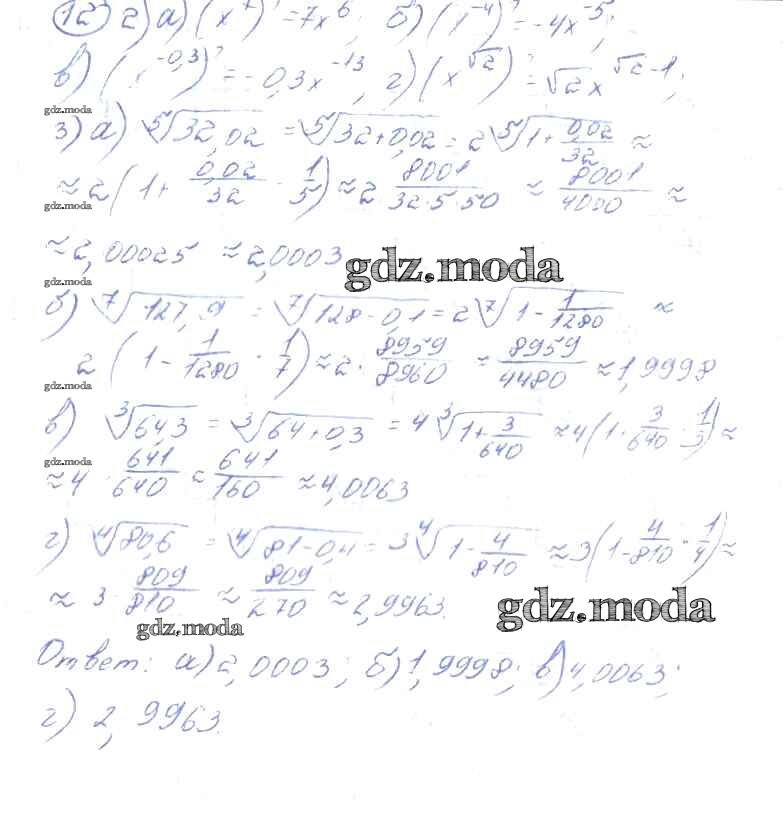 12 2) а) (x⁷)' = 7x⁶; б) (x⁻⁴)' = -4x⁻⁵;
в) (x⁻⁰,³)' = -0,3x⁻¹³, г) (x^√2)' = √2 x^√2-1;
gdz.moda
3) а) ⁵√32,02 = ⁵√32+0,02 = 2 ⁵√1+0,02/32 ≈
≈ 2 (1+ 0,02/32 · 1/5) ≈ 2 · 8001/32·5·50 ≈ 8001/4000 ≈
gdz.moda
≈ 2,00025 ≈ 2,0003
gdz.moda
б) ⁷√127,9 = ⁷√128-0,1 = 2 ⁷√1-1/1280 ≈
2 (1- 1/1280 · 1/7) ≈ 2 · 8959/8960 = 8959/4480 ≈ 1,9998
gdz.moda
в) ³√64,3 = ³√64+0,3 = 4 ³√1+3/640 ≈ 4(1· 3/640 · 1/3) ≈
gdz.moda
≈ 4 · 641/640 ≈ 641/160 ≈ 4,0063
г) ⁴√80,6 = ⁴√81-0,4 = 3 ⁴√1-4/810 ≈ 3(1- 4/810 · 1/4) ≈
≈ 3 · 809/810 ≈ 809/270 ≈ 2,9963.
gdz.moda
gdz.moda
Ответ: а) 2,0003; б) 1,9998; в) 4,0063;
г) 2,9963.